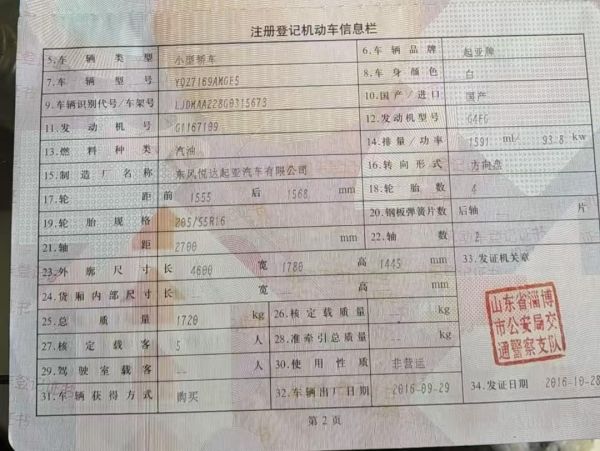 注册登记机动车信息栏
5.车辆类型 小型轿车 6.车辆品牌 起亚牌
7.车辆型号 YQZ7169AMGE5 8.车身颜色 白
9.车辆识别代号/车架号 LJDMAA228G0315673 10.国产/进口 国产
11.发动机号 G1167199 12.发动机型号 G4FG
13.燃料种类 汽油 14.排量/功率 1591 ml/ 93.8 kw
15.制造厂名称 东风悦达起亚汽车有限公司 16.转向形式 方向盘
17.轮距 前 1555 后 1568 mm 18.轮胎数 4
19.轮胎规格 205/55R16 20.钢板弹簧片数 后轴 片
21.轴距 2700 mm 22.轴数 2
23.外廓尺寸 长 4600 宽 1780 高 1445 mm 33.发证机关章
24.货厢内部尺寸 长 -- 宽 -- 高 -- mm
25.总质量 1720 kg 26.核定载质量 -- kg
27.核定载客 5 人 28.准牵引总质量 -- kg
29.驾驶室载客 -- 人 30.使用性质 非营运
31.车辆获得方式 购买 32.车辆出厂日期 2016-09-29 34.发证日期 2016-10-28
山东省淄博
市公安局交
通警察支队
第2页